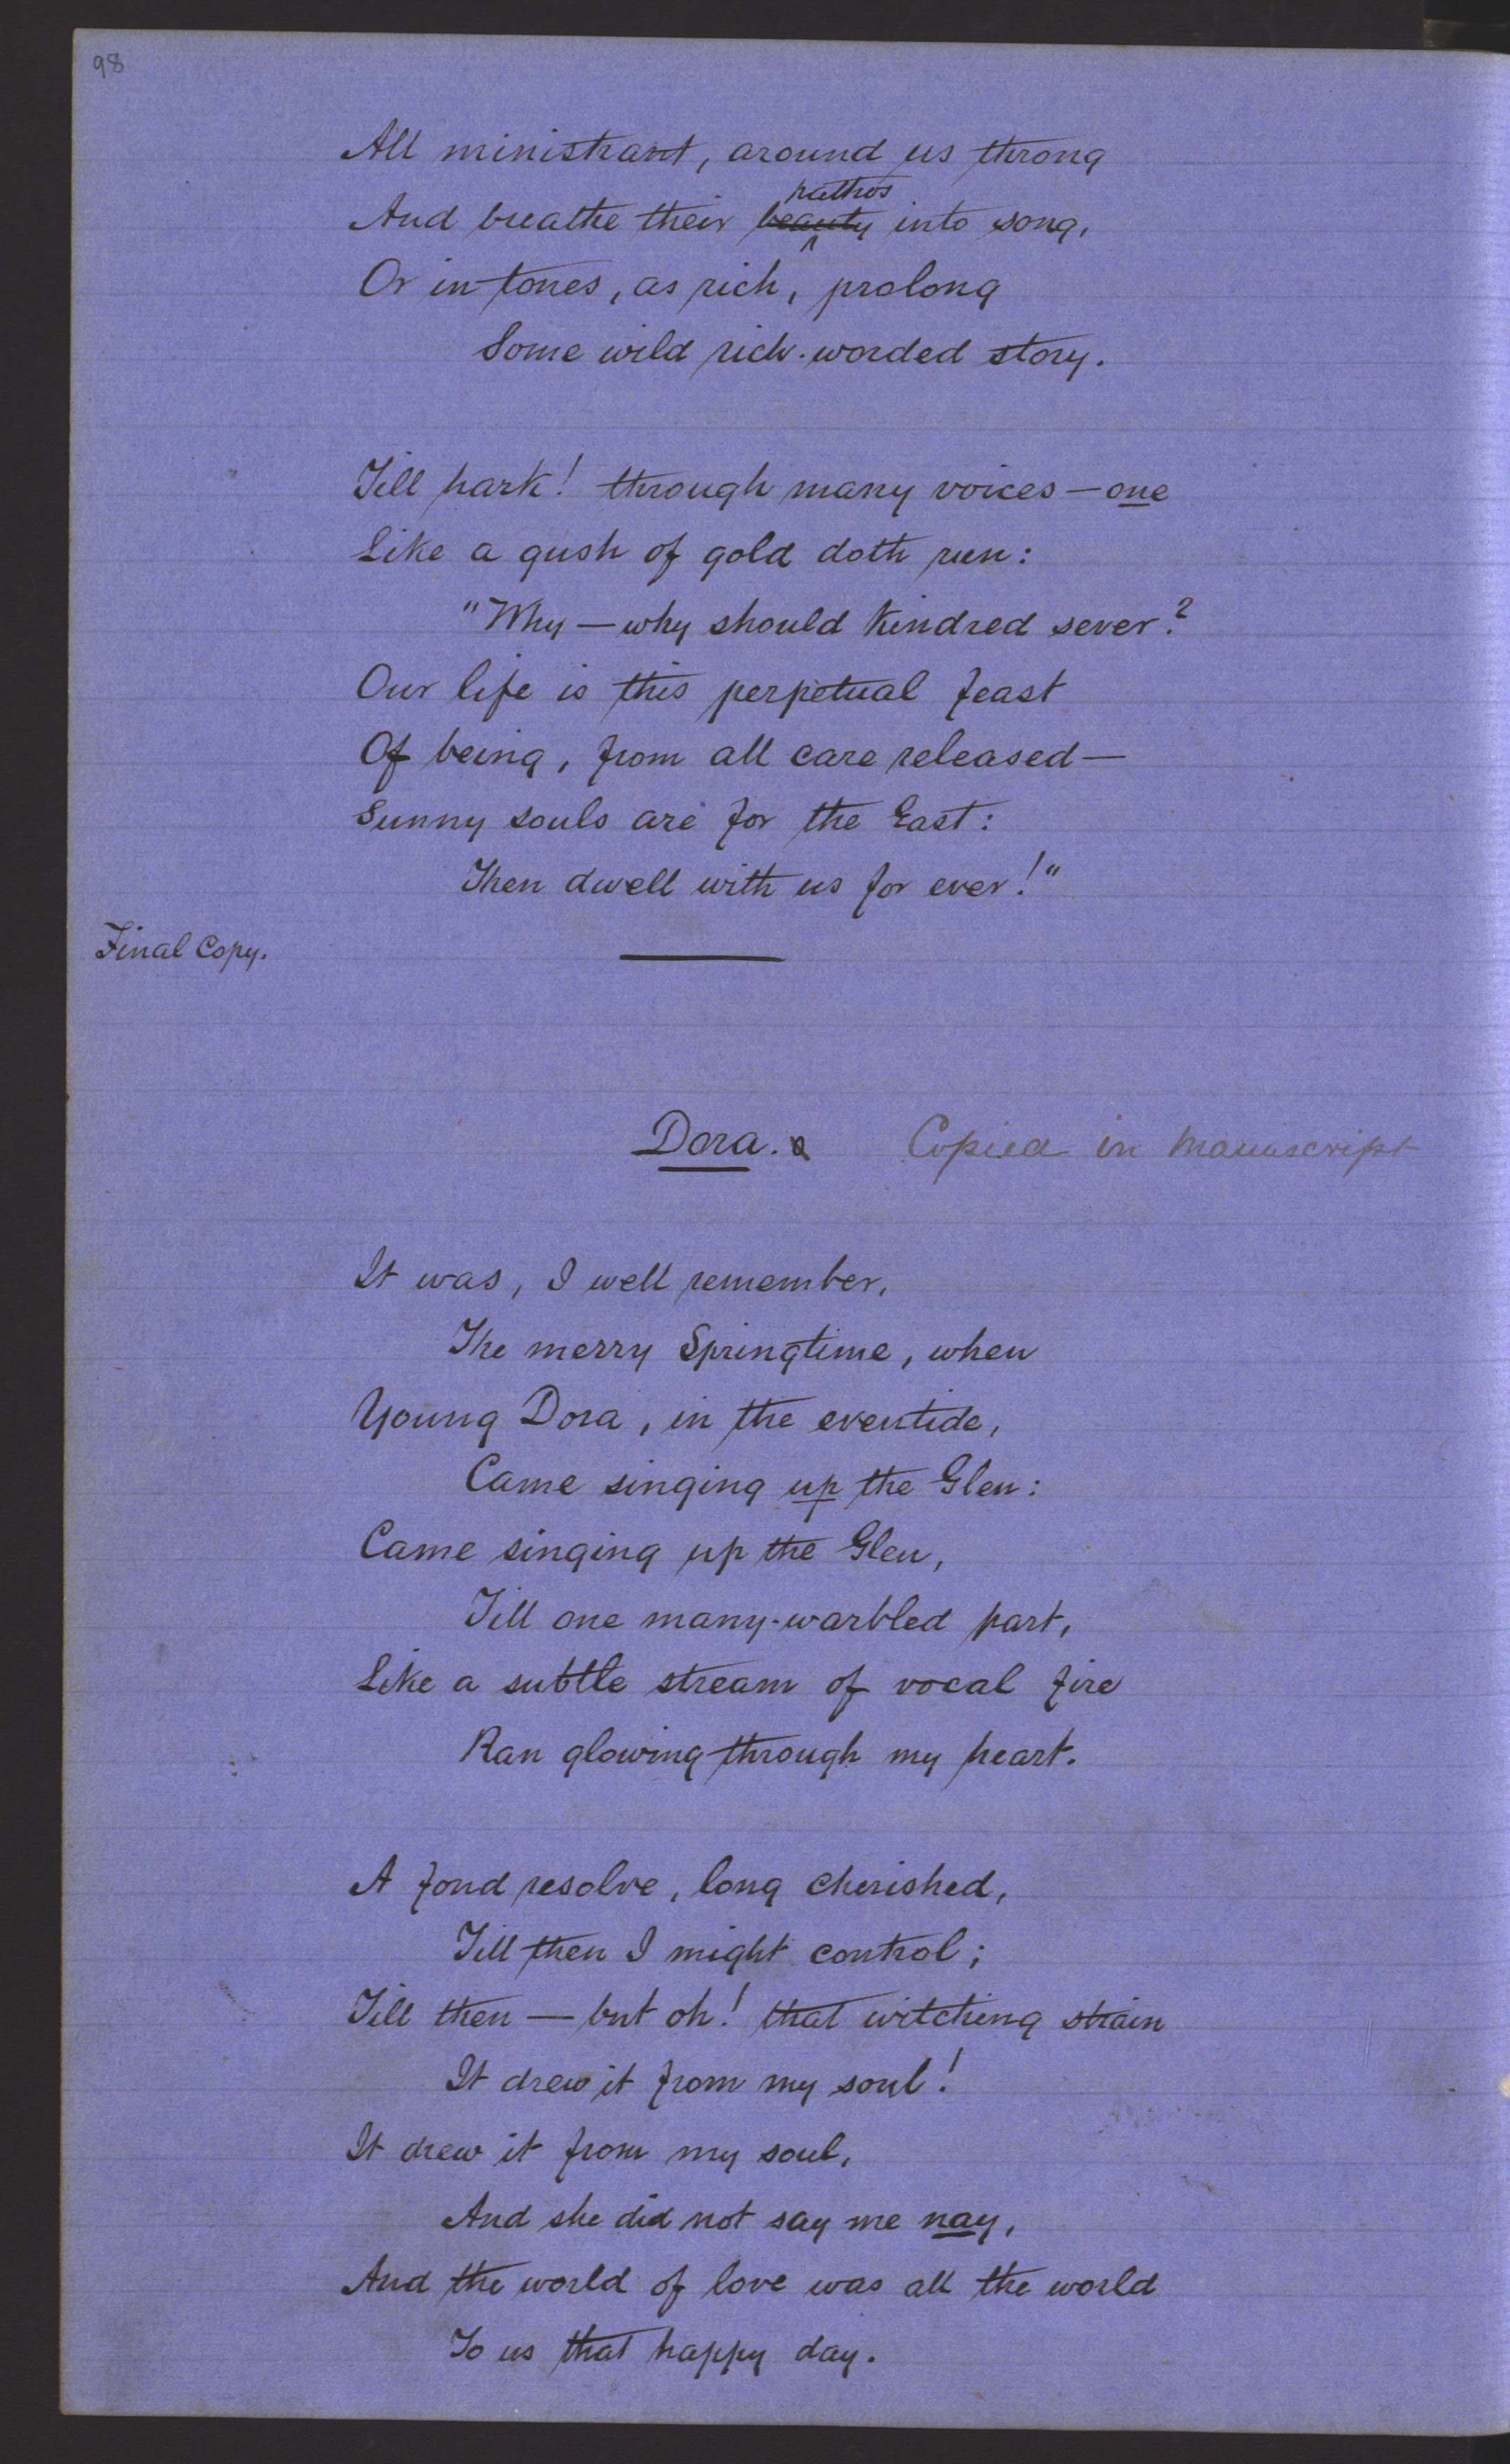 98
All ministrant, around us throng
pathos
And breathe their beauty into song,
Or in tones, as rich, prolong
Some wild rich-worded story.
Till hark! through many voices — one
Like a gush of gold doth run:
"Why — why should kindred sever?
Our life is this perpetual feast
Of being, from all care released —
Sunny souls are for the East:
Then dwell with us for ever!"
Final Copy.
Dora. Copied in Manuscript
It was, I well remember,
The merry Springtime, when
Young Dora, in the eventide,
Came singing up the Glen:
Came singing up the Glen,
Till one many-warbled part,
Like a subtle stream of vocal fire
Ran glowing through my heart.
A fond resolve, long cherished,
Till then I might control;
Till then — but oh! that witching strain
It drew it from my soul!
It drew it from my soul,
And she did not say me nay,
And the world of love was all the world
To us that happy day.